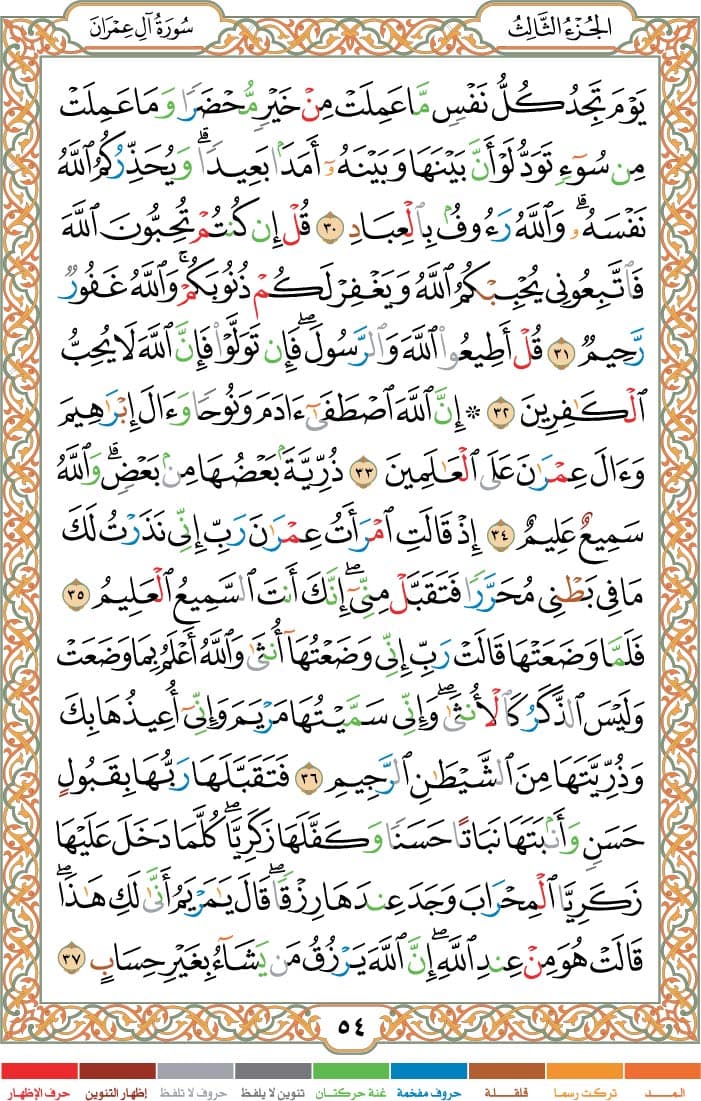 الجُزْءُ الثَّالِثُ
سُورَةُ آلِ عِمْرَانَ
يَوْمَ تَجِدُ كُلُّ نَفْسٍ مَّا عَمِلَتْ مِنْ خَيْرٍ مُّحْضَرًا وَمَا عَمِلَتْ
مِن سُوٓءٍ تَوَدُّ لَوْ أَنَّ بَيْنَهَا وَبَيْنَهُۥٓ أَمَدَۢا بَعِيدًا ۗ وَيُحَذِّرُكُمُ ٱللَّهُ
نَفْسَهُۥ ۗ وَٱللَّهُ رَءُوفُۢ بِٱلْعِبَادِ ٣٠ قُلْ إِن كُنتُمْ تُحِبُّونَ ٱللَّهَ
فَٱتَّبِعُونِى يُحْبِبْكُمُ ٱللَّهُ وَيَغْفِرْ لَكُمْ ذُنُوبَكُمْ ۚ وَٱللَّهُ غَفُورٌ
رَّحِيمٌ ٣١ قُلْ أَطِيعُوا۟ ٱللَّهَ وَٱلرَّسُولَ ۖ فَإِن تَوَلَّوْا۟ فَإِنَّ ٱللَّهَ لَا يُحِبُّ
ٱلْكَٰفِرِينَ ٣٢ ۞ إِنَّ ٱللَّهَ ٱصْطَفَىٰٓ ءَادَمَ وَنُوحًا وَءَالَ إِبْرَٰهِيمَ
وَءَالَ عِمْرَٰنَ عَلَى ٱلْعَٰلَمِينَ ٣٣ ذُرِّيَّةَۢ بَعْضُهَا مِنۢ بَعْضٍ ۗ وَٱللَّهُ
سَمِيعٌ عَلِيمٌ ٣٤ إِذْ قَالَتِ ٱمْرَأَتُ عِمْرَٰنَ رَبِّ إِنِّى نَذَرْتُ لَكَ
مَا فِى بَطْنِى مُحَرَّرًا فَتَقَبَّلْ مِنِّىٓ ۖ إِنَّكَ أَنتَ ٱلسَّمِيعُ ٱلْعَلِيمُ ٣٥
فَلَمَّا وَضَعَتْهَا قَالَتْ رَبِّ إِنِّى وَضَعْتُهَآ أُنثَىٰ وَٱللَّهُ أَعْلَمُ بِمَا وَضَعَتْ
وَلَيْسَ ٱلذَّكَرُ كَٱلْأُنثَىٰ ۖ وَإِنِّى سَمَّيْتُهَا مَرْيَمَ وَإِنِّىٓ أُعِيذُهَا بِكَ
وَذُرِّيَّتَهَا مِنَ ٱلشَّيْطَٰنِ ٱلرَّجِيمِ ٣٦ فَتَقَبَّلَهَا رَبُّهَا بِقَبُولٍ
حَسَنٍ وَأَنۢبَتَهَا نَبَاتًا حَسَنًا وَكَفَّلَهَا زَكَرِيَّا ۖ كُلَّمَا دَخَلَ عَلَيْهَا
زَكَرِيَّا ٱلْمِحْرَابَ وَجَدَ عِندَهَا رِزْقًا ۖ قَالَ يَٰمَرْيَمُ أَنَّىٰ لَكِ هَٰذَا ۖ
قَالَتْ هُوَ مِنْ عِندِ ٱللَّهِ ۖ إِنَّ ٱللَّهَ يَرْزُقُ مَن يَشَآءُ بِغَيْرِ حِسَابٍ ٣٧
٥٤
المـــد تركت رسما قلقـــلة حروف مفخمة غنة حركتان تنوين لا يلفظ حروف لا تلفظ إظهار التنوين حرف الإظهار